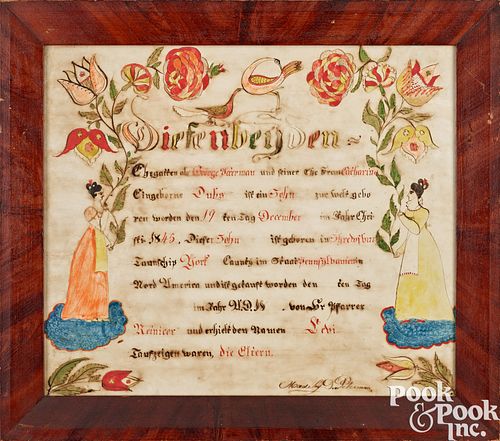 Diesenbeyden
Ehegatten als George Harrman und seiner Ehe Frau Catharin
Eingeborne Duhs ist ein Sohn zur welt gebo
ren worden den 19 ten Tag December im Jahr Chri
sti 1845. Dieser Sohn ist geboren in
Taunschip York Caunty im Staat Pennsylvanien in
Nord America und ist getauft worden den ten Tag
im Jahr A.D. 18 von Hr Pfarrer
Reinicer und erhielt den Namen Levi
Taufzeigen waren, die Eltern.
Made by
Pook
& Pook
Inc.